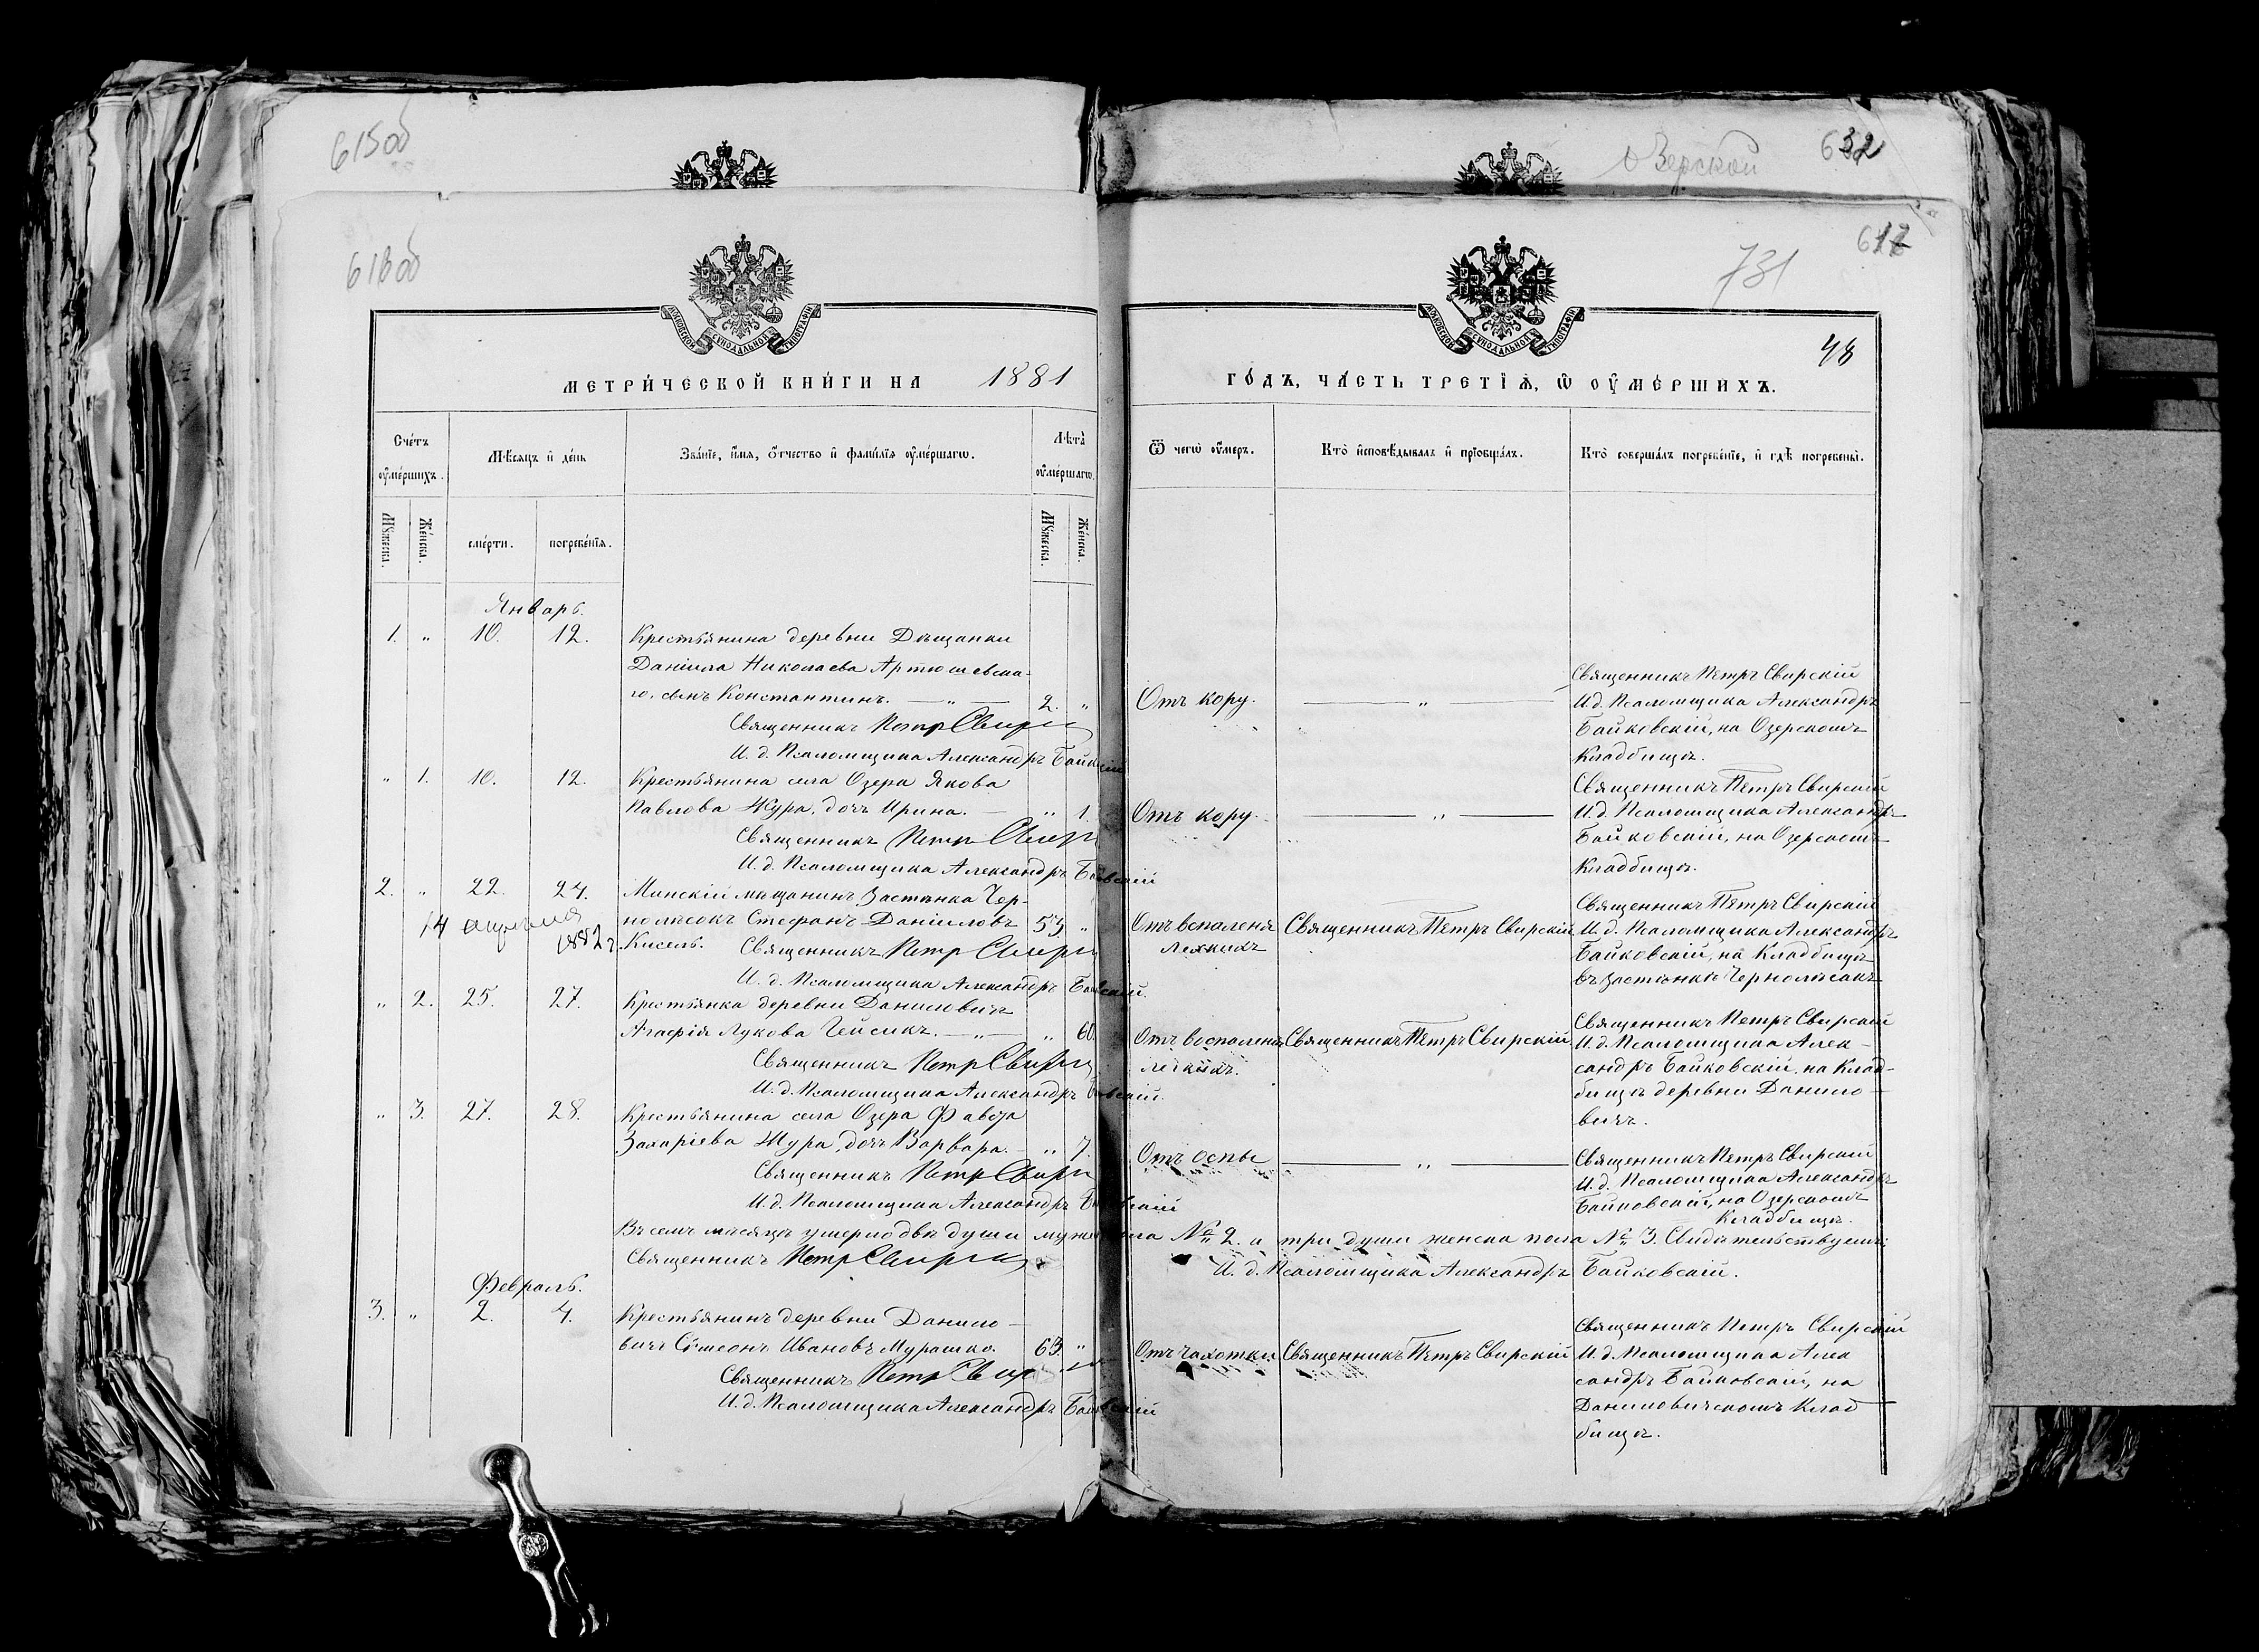 615об
Озерской
632
616об
731
617
МОСКОВСКОЙ СѴНОДАЛЬНОЙ ТИПОГРАФІИ
МОСКОВСКОЙ СѴНОДАЛЬНОЙ ТИПОГРАФІИ
48
МЕТРИ́ЧЕСКОЙ КНИ́ГИ НА 1881
ГО́ДЪ, ЧА́СТЬ ТРЕТІѦ, Ѡ ОУМЕ́РШИХЪ.
Сче́тъ оуме́ршихъ.
Мѣсяцъ и де́нь
Зва́нїе, и́мя, о́тчество и фами́лїя оуме́ршагѡ.
Лѣта̀ оуме́ршагѡ.
Ѿ чегѡ̀ оу́меръ.
Кто̀ и҆сповѣ́дывалъ и҆ прїобща́лъ.
Кто̀ соверша́лъ погребе́нїе, и҆ гдѣ̀ погребены̀.
Мꙋ́жеска.
Же́нска.
сме́рти.
погребе́нїя.
Мꙋ́жеска.
Же́нска.
Январь.
1. " 10. 12. Крестьянина деревни Дѣщанки
Даніила Николаева Артюшевска-
го, сынъ Константинъ. — " — 2. "
Отъ кору. — " —
Священникъ Петръ Свирскій
И.д. Псаломщика Александръ
Байковскій, на Озерскомъ
Кладбищѣ.
Священникъ Петръ Свирскі
И. д. Псаломщика Александръ Байковскій
" 1. 10. 12. Крестьянина села Озера Якова
Павлова Жура, дочь Ирина. — " 1.
Отъ кору. — " —
Священникъ Петръ Свирскій
И.д. Псаломщика Александръ
Байковскій, на Озерскомъ
Кладбищѣ.
Священникъ Петръ Свирскі
И. д. Псаломщика Александръ Байковскій
2. " 22. 24. Минскій мѣщанинъ Застѣнка Чер-
нолѣсокъ Стефанъ Даніиловъ 55 "
14 апреля
1882 г.
Кисель. Священникъ Петръ Свирскі
И. д. Псаломщика Александръ Байковскій.
Отъ воспаленія
легкихъ
Священникъ Петръ Свирскій
Священникъ Петръ Свирскій
И. д. Псаломщика Александръ
Байковскій, на Кладбищѣ
въ Застѣнкѣ Чернолѣсокъ
" 2. 25. 27. Крестьянка деревни Даниловичъ
Агафія Лукова Гейсикъ. — " — " 60.
Священникъ Петръ Свирскі
И. д. Псаломщика Александръ Байковскій.
Отъ воспаленія
легкихъ.
Священникъ Петръ Свирскій.
Священникъ Петръ Свирскій
И. д. Псаломщика Алек-
сандръ Байковскій, на Клад-
бищѣ деревни Данило-
вичъ.
" 3. 27. 28. Крестьянина села Озера
Захаріева Жура, дочь Варвара. — " 7.
Священникъ Петръ Свирскі
И. д. Псаломщика Александръ Байковскій
Отъ оспы — " —
Священникъ Петръ Свирскій
И. д. Псаломщика Александръ
Байковскій, на Озерскомъ
Кладбищѣ.
Въ семъ мѣсяцѣ умерло двѣ души мужеска пола № 2. и три души женска пола № 3. Свидѣтельствуемъ:
Священникъ Петръ Свирскі
И. д. Псаломщика Александръ Байковскій.
Февраль.
3. " 2. 4. Крестьянинъ деревни Данило-
вичъ Сѵмеонъ Ивановъ Мурашко. 65 "
Священникъ Петръ Свирскі
И. д. Псаломщика Александръ Байковскій
Отъ чахотки
Священникъ Петръ Свирскій
Священникъ Петръ Свирскій
И. д. Псаломщика Алек
сандръ Байковскій, на
Даниловичскомъ Клад
бищѣ.